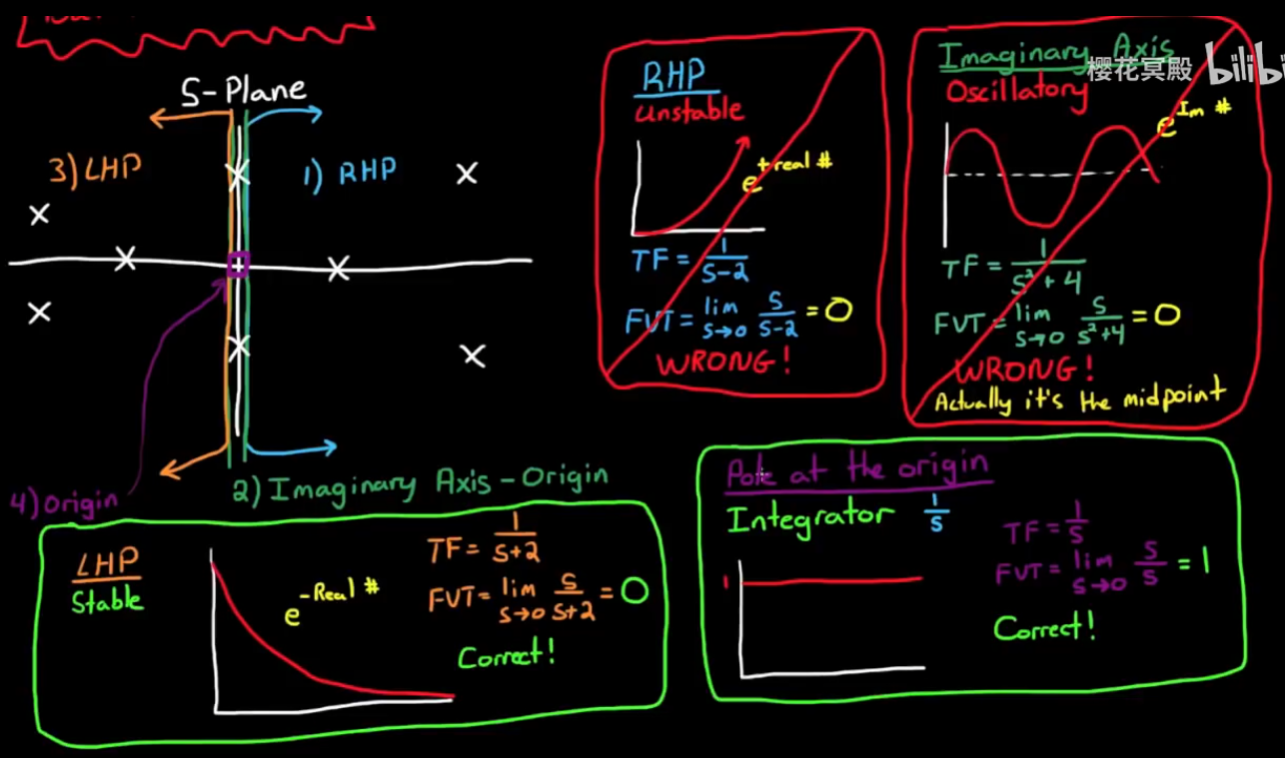 S-Plane
3) LHP
1) RHP
4) Origin
2) Imaginary Axis - Origin
RHP
Unstable
e^{+real #}
TF = 1/(s-2)
FVT = lim s→0 s/(s-2) = 0
WRONG!
Imaginary Axis
樱花冥殿
Oscillatory
e^{Im #}
TF = 1/(s²+4)
FVT = lim s→0 s/(s²+4) = 0
WRONG!
Actually it's the midpoint
LHP
Stable
e^{-Real #}
TF = 1/(s+2)
FVT = lim s→0 s/(s+2) = 0
Correct!
Pole at the origin
Integrator 1/s
1
TF = 1/s
FVT = lim s→0 s/s = 1
Correct!